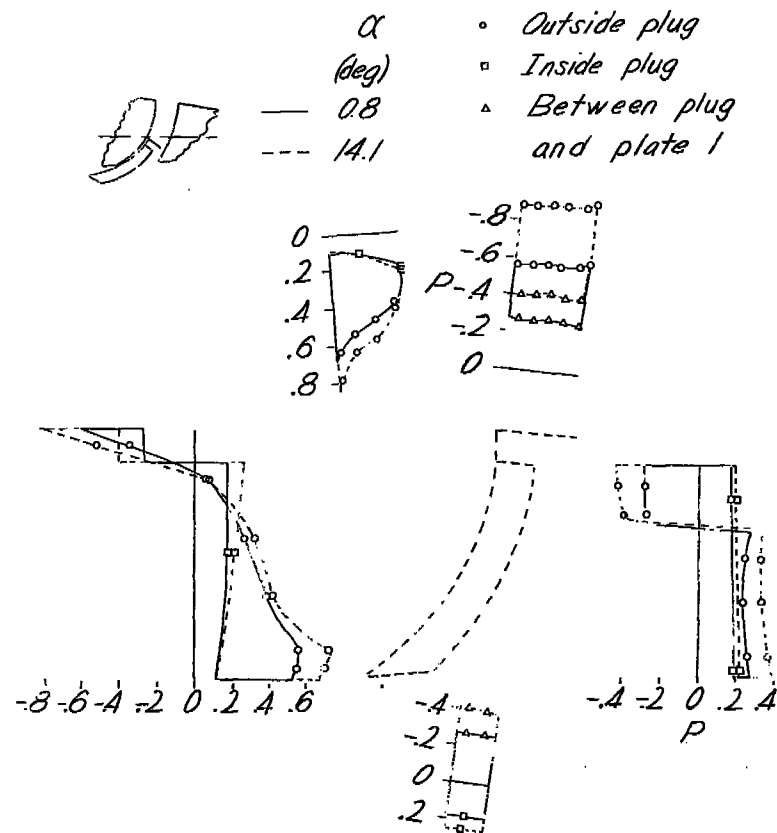 α
(deg)
0.8
14.1
Outside plug
Inside plug
Between plug
and plate 1
0
.2
.4
.6
.8
-.8
-.6
P -.4
-.2
0
-.8 -.6 -.4 -.2 0 .2 .4 .6
-.4
-.2
0
.2
-.4 -.2 0 .2 .4
P